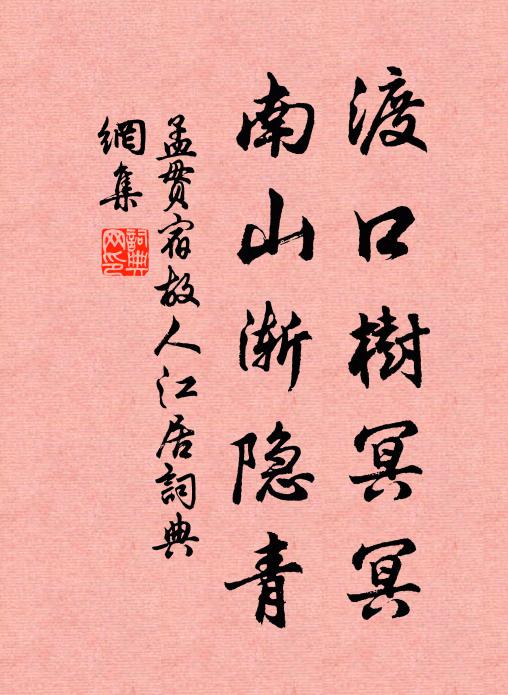 渡口樹冥冥
南山渐隐青
孟贯宿故人江居詞典
網集
詞典
网印